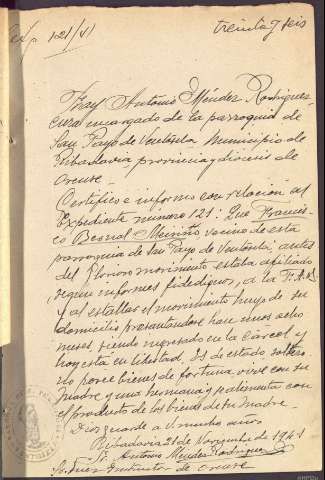 Exp 121/41
treinta y seis
Fray Antonio Méndez Rodriguez
cura encargado de la parroquia de
San Payo de Ventosela Municipio de
Ribadavia provincia y diocesis de
Orense.
Certifico e informo con relación al
Expediente número 121: Que Francis-
co Bernal Meiriño vecino de esta
parroquia de San Payo de Ventosela antes
del Glorioso movimiento estaba afiliado
según informes fidedignos, a la
y al estallar el movimiento huyó de su
domicilio presentandose hará unos ocho
meses, siendo ingresado en la Cárcel y
hoy está en libertad. Es de estado soltero
no posee bienes de fortuna vive con su
madre y una hermana y se alimenta con
el producto de los bienes de su madre.
Dios guarde a V. muchos años
Ribadavia 21 de Noviembre de 1941
Fr. Antonio Méndez Rodriguez
Sr. Juez Instructor de Orense